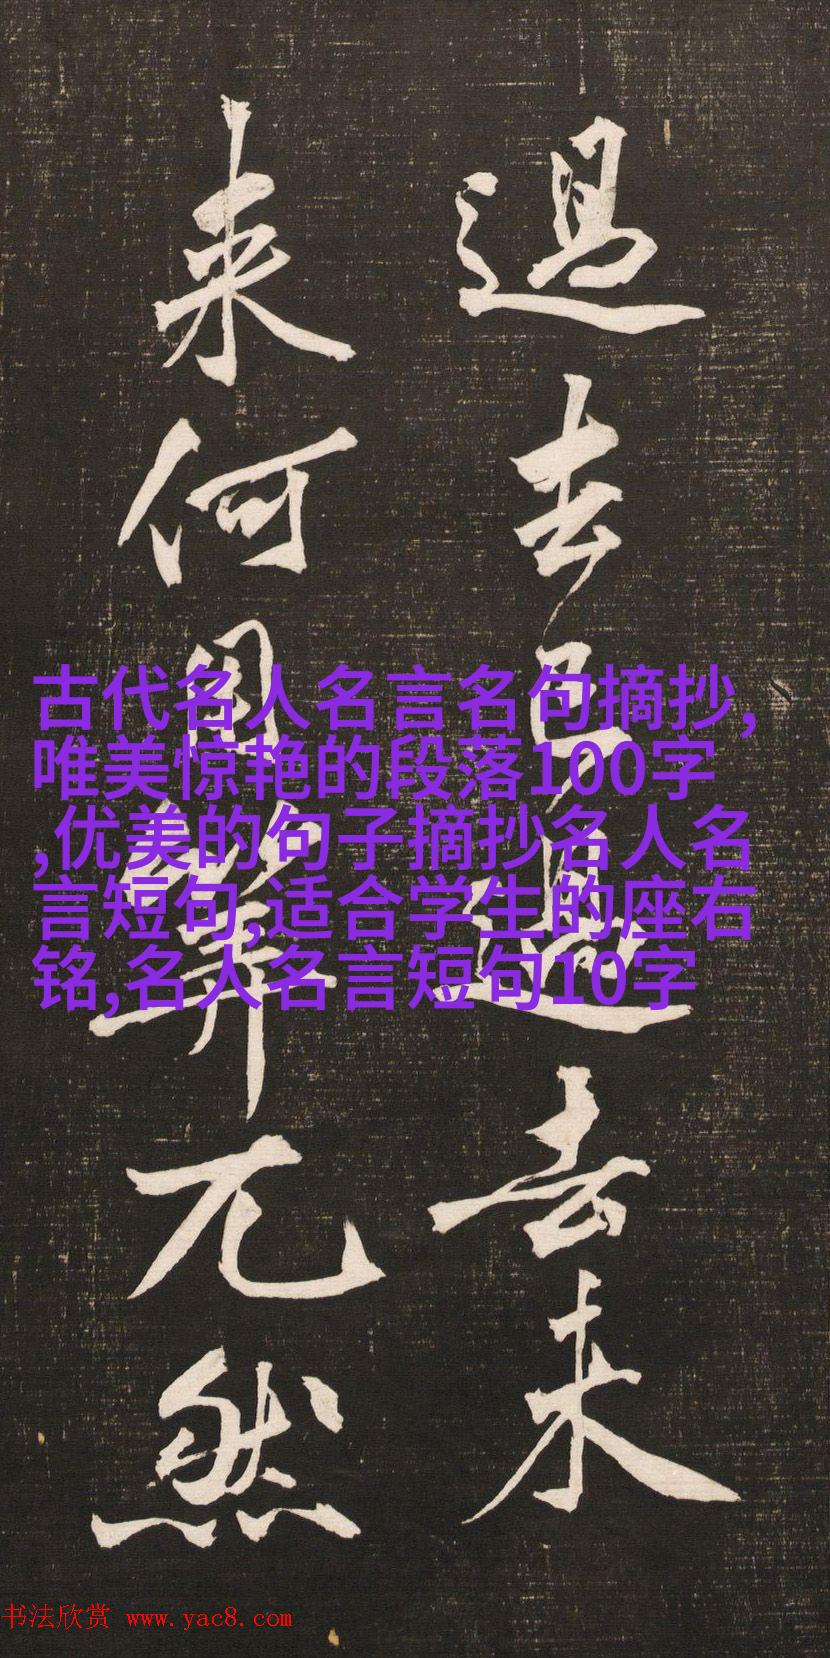 過去已過去未
来何用筭兀然
古代名人名言名句摘抄,
唯美惊艳的段落100字
,优美的句子摘抄名人名
言短句,适合学生的座右
铭,名人名言短句10字
书法欣赏 www.yac8.com